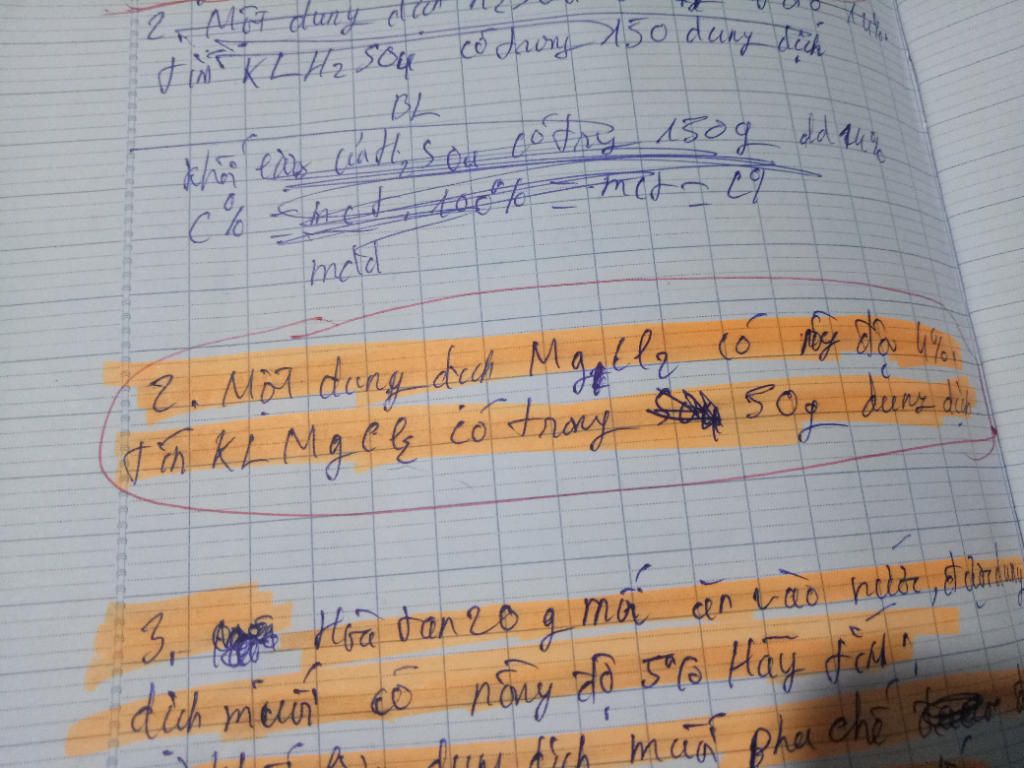 2. Một dung dịch H2SO4 14%.
tìm KL H2SO4 có trong 150 dung dịch
BL
khối H2SO4 có trong 150g dd 14%
C% = mct. 100% = mct = C%
mdd
2. Một dung dịch MgCl2 có nồng độ 4%.
tìm KL MgCl2 có trong 50g dung dịch
3. Hòa tan 20 g muối ăn vào nước, được dung
dịch muối có nồng độ 5% Hãy tính:
dung dịch muối pha chế